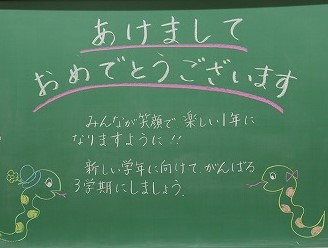 あけまして
おめでとうございます
みんなが笑顔で楽しい1年に
なりますように!!
新しい学年に向けてがんばる
3学期にしましょう。